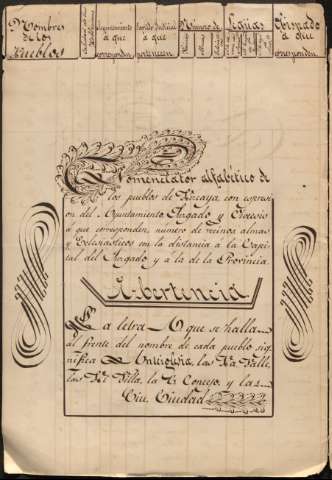 Nombres
de los
Pueblos
Ayuntamiento
á que
corresponden
Partido Judicial
á que
pertenecen
Número de
Leguas
Obispado
á que
corresponden
Nomenclator alfabético de
los pueblos de Vizcaya con expresi
on del Ayuntamiento Juzgado y Diocesis
á que corresponden, numero de vecinos almas
y Eclesiasticos con la distancia a la Capi
tal del Juzgado y á la de la Provincia.
Advertencia
La letra A que se halla
al frente del nombre de cada pueblo sig
nifica Anteiglesia, las Va. Valle,
las Vi. Villa, la C. Concejo, y la
Ciu. Ciudad